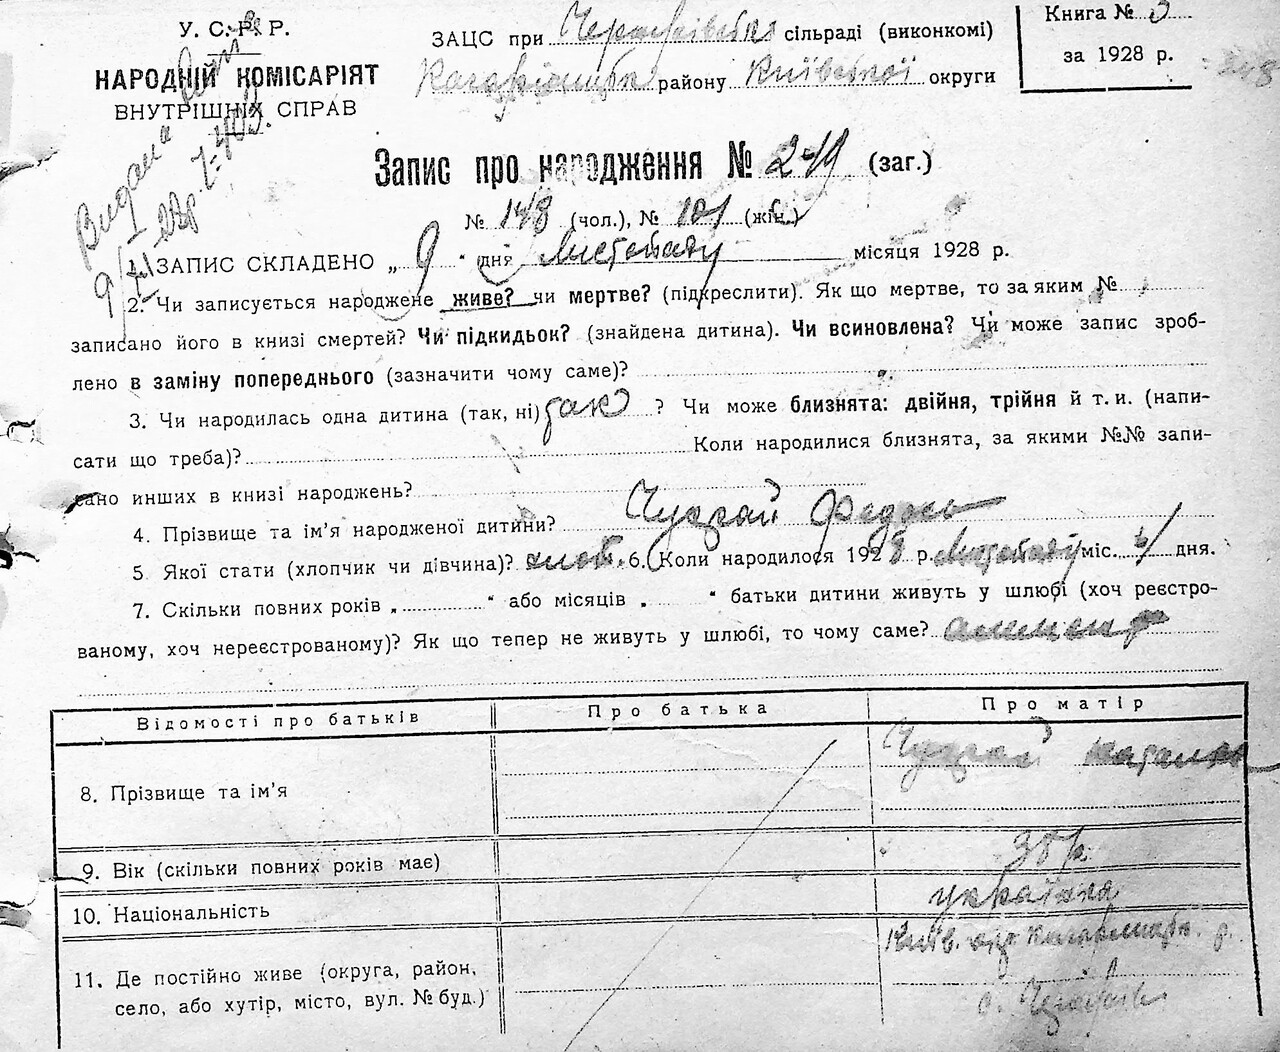 У. С. Р. Р.
НАРОДНІЙ КОМІСАРІЯТ
ВНУТРІШНІХ СПРАВ
Видана
ЗАЦС при сільраді (виконкомі)
району Київської округи
Книга № 3
за 1928 р.
Запис про народження № 249 (заг.)
№ 148 (чол.), № 101 (жін.)
1. ЗАПИС СКЛАДЕНО „ 9 “ дня Листопаду місяця 1928 р.
2. Чи записується народжене живе? чи мертве? (підкреслити). Як що мертве, то за яким №
записано його в книзі смертей? Чи підкидьок? (знайдена дитина). Чи всиновлена? Чи може запис зроб-
лено в заміну попереднього (зазначити чому саме)?
3. Чи народилась одна дитина (так, ні) так ? Чи може близнята: двійня, трійня й т. и. (напи-
сати що треба)? Коли народилися близнята, за якими №№ запи-
сано инших в книзі народжень?
4. Прізвище та ім’я народженої дитини? Федось
5. Якої стати (хлопчик чи дівчина)? 6. Коли народилося 1928 р. Листопаду міс. дня.
7. Скільки повних років „ “ або місяців „ “ батьки дитини живуть у шлюбі (хоч реєстро-
ваному, хоч нереєстрованому)? Як що тепер не живуть у шлюбі, то чому саме?
Відомості про батьків Про батька Про матір
8. Прізвище та ім’я
9. Вік (скільки повних років має) 38 р.
10. Національність українка
11. Де постійно живе (округа, район, Київ. окр. р.
село, або хутір, місто, вул. № буд.) с.